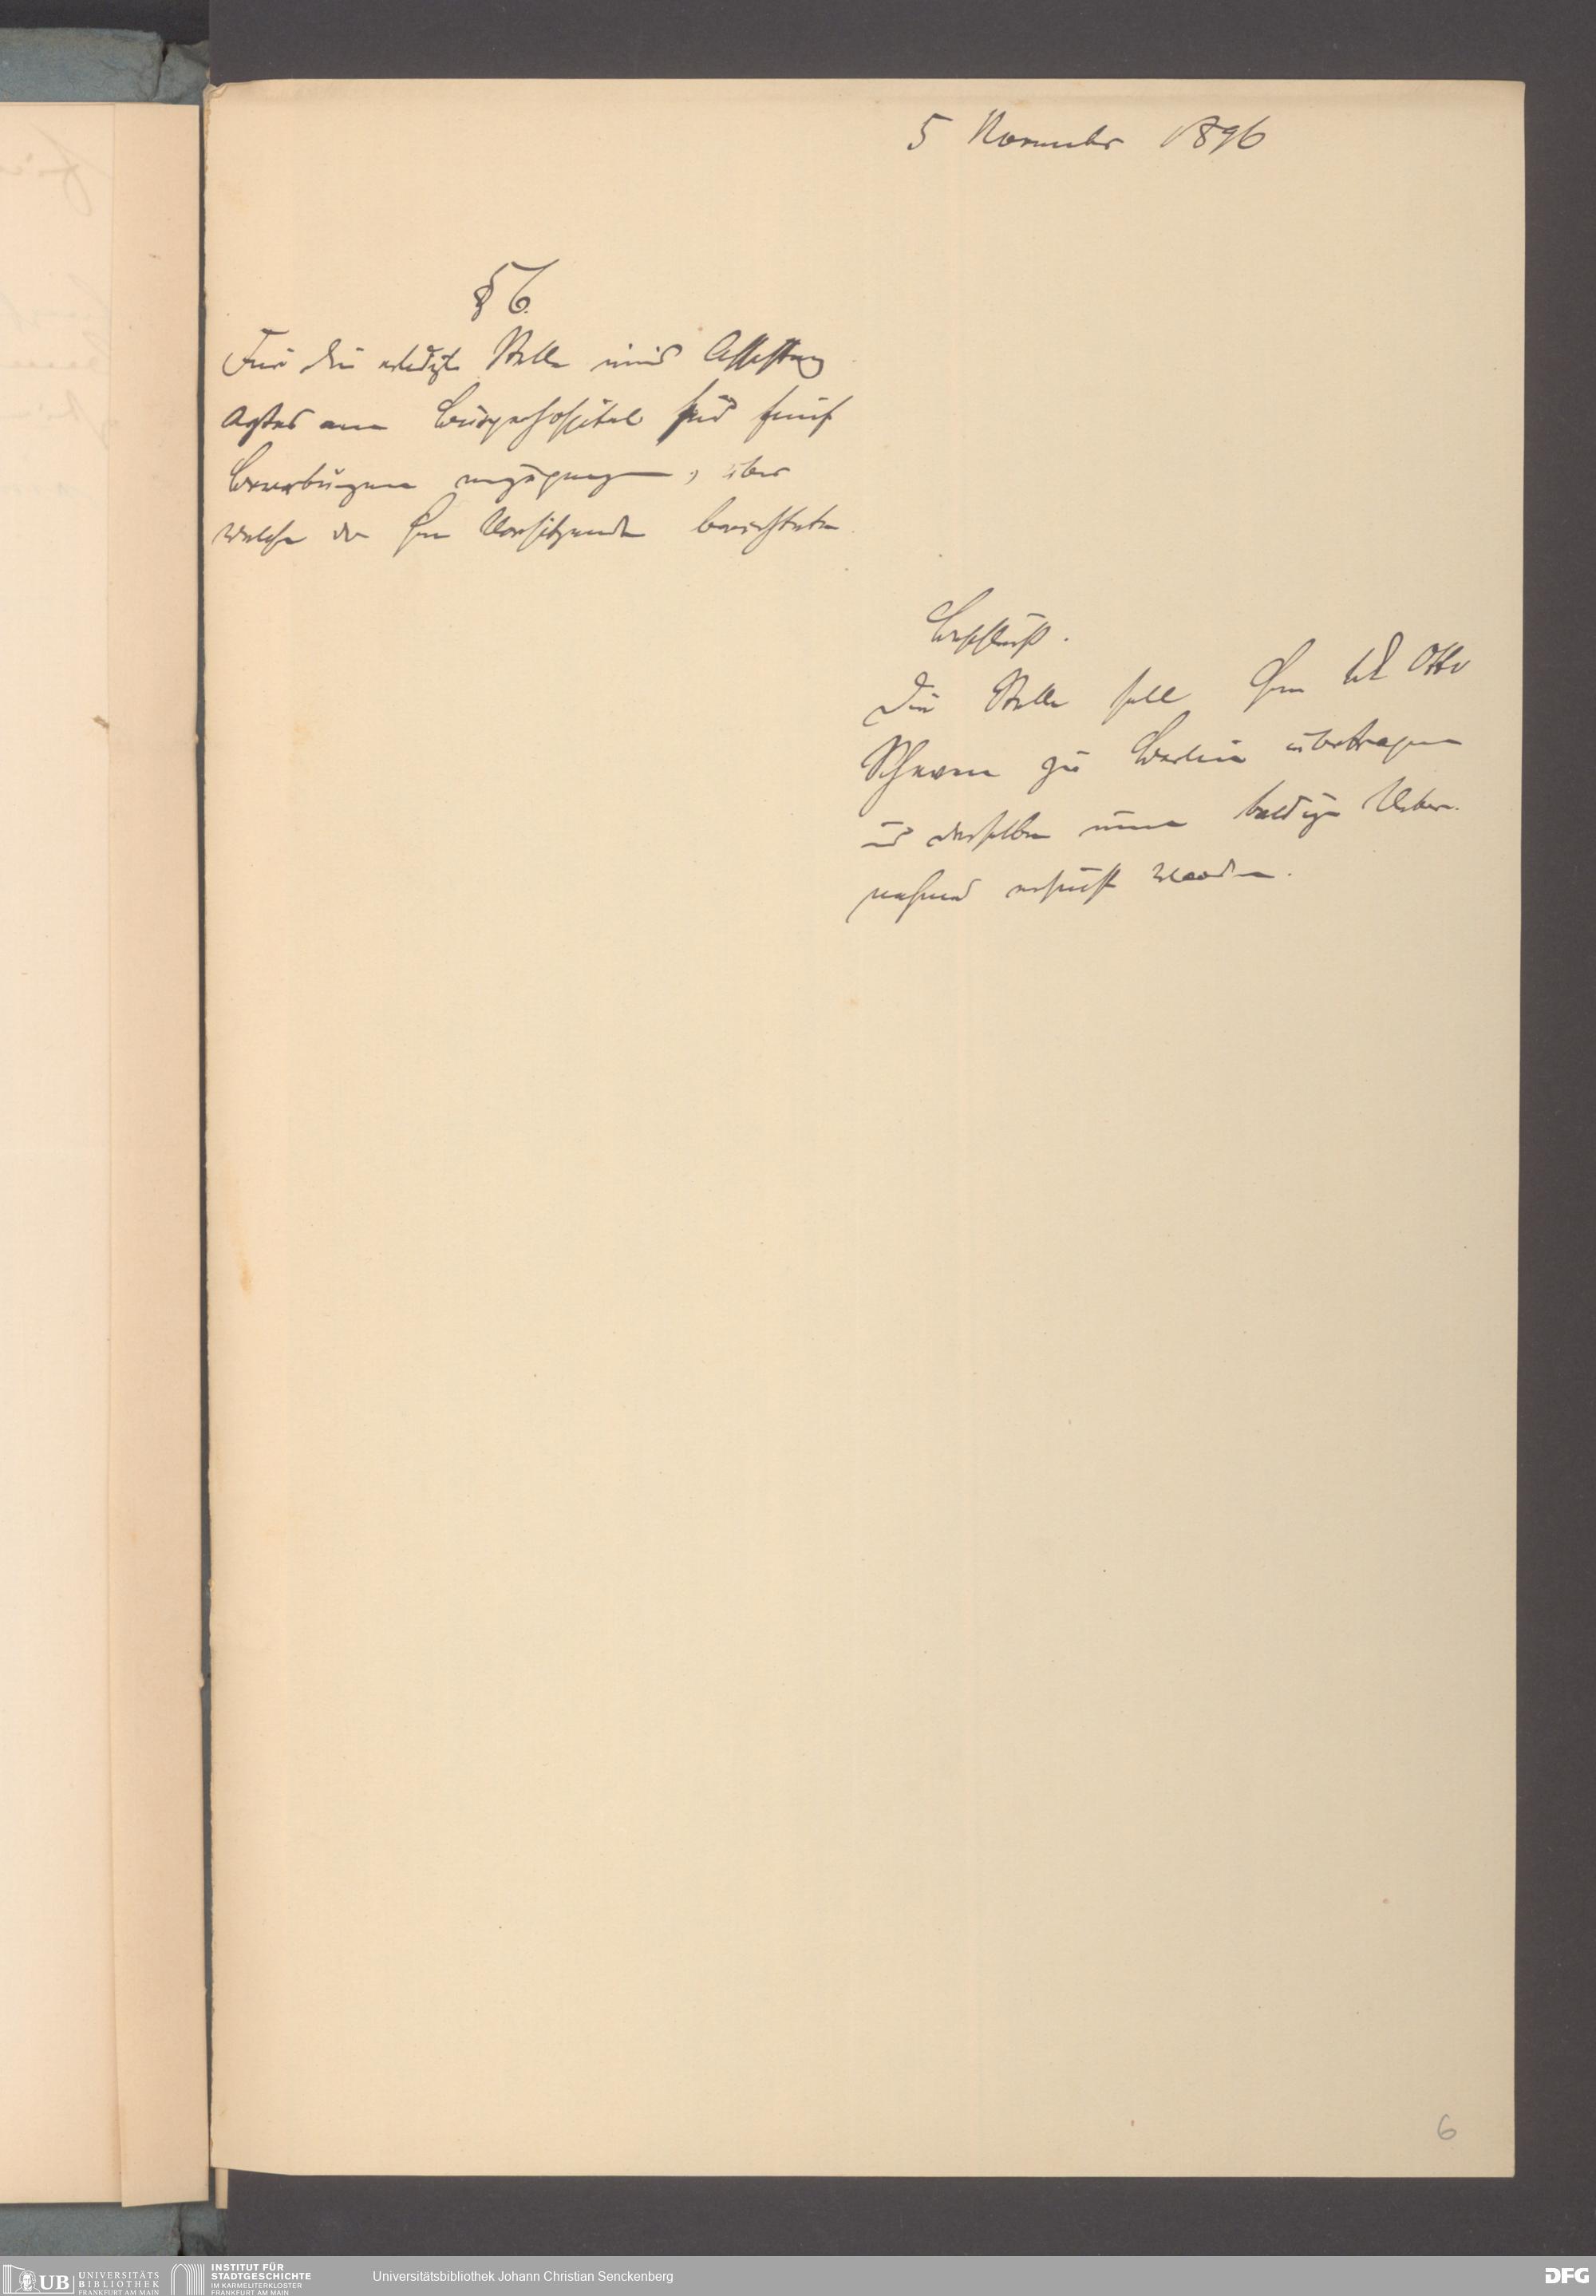 5 November 1896
§ 6.
Für die erledigte Stelle eines Assistenz
Arztes am Bürgerhospital sind fünf
Bewerbungen eingegangen, über
welche der Herr Vorsitzende berichtete.
Beschluß.
Die Stelle soll Herrn Otto
zu Berlin übertragen
und derselbe um baldige Ueber-
nahme ersucht werden.
6
UB UNIVERSITÄTS
BIBLIOTHEK
FRANKFURT AM MAIN
INSTITUT FÜR
STADTGESCHICHTE
IM KARMELITERKLOSTER
FRANKFURT AM MAIN
Universitätsbibliothek Johann Christian Senckenberg
DFG